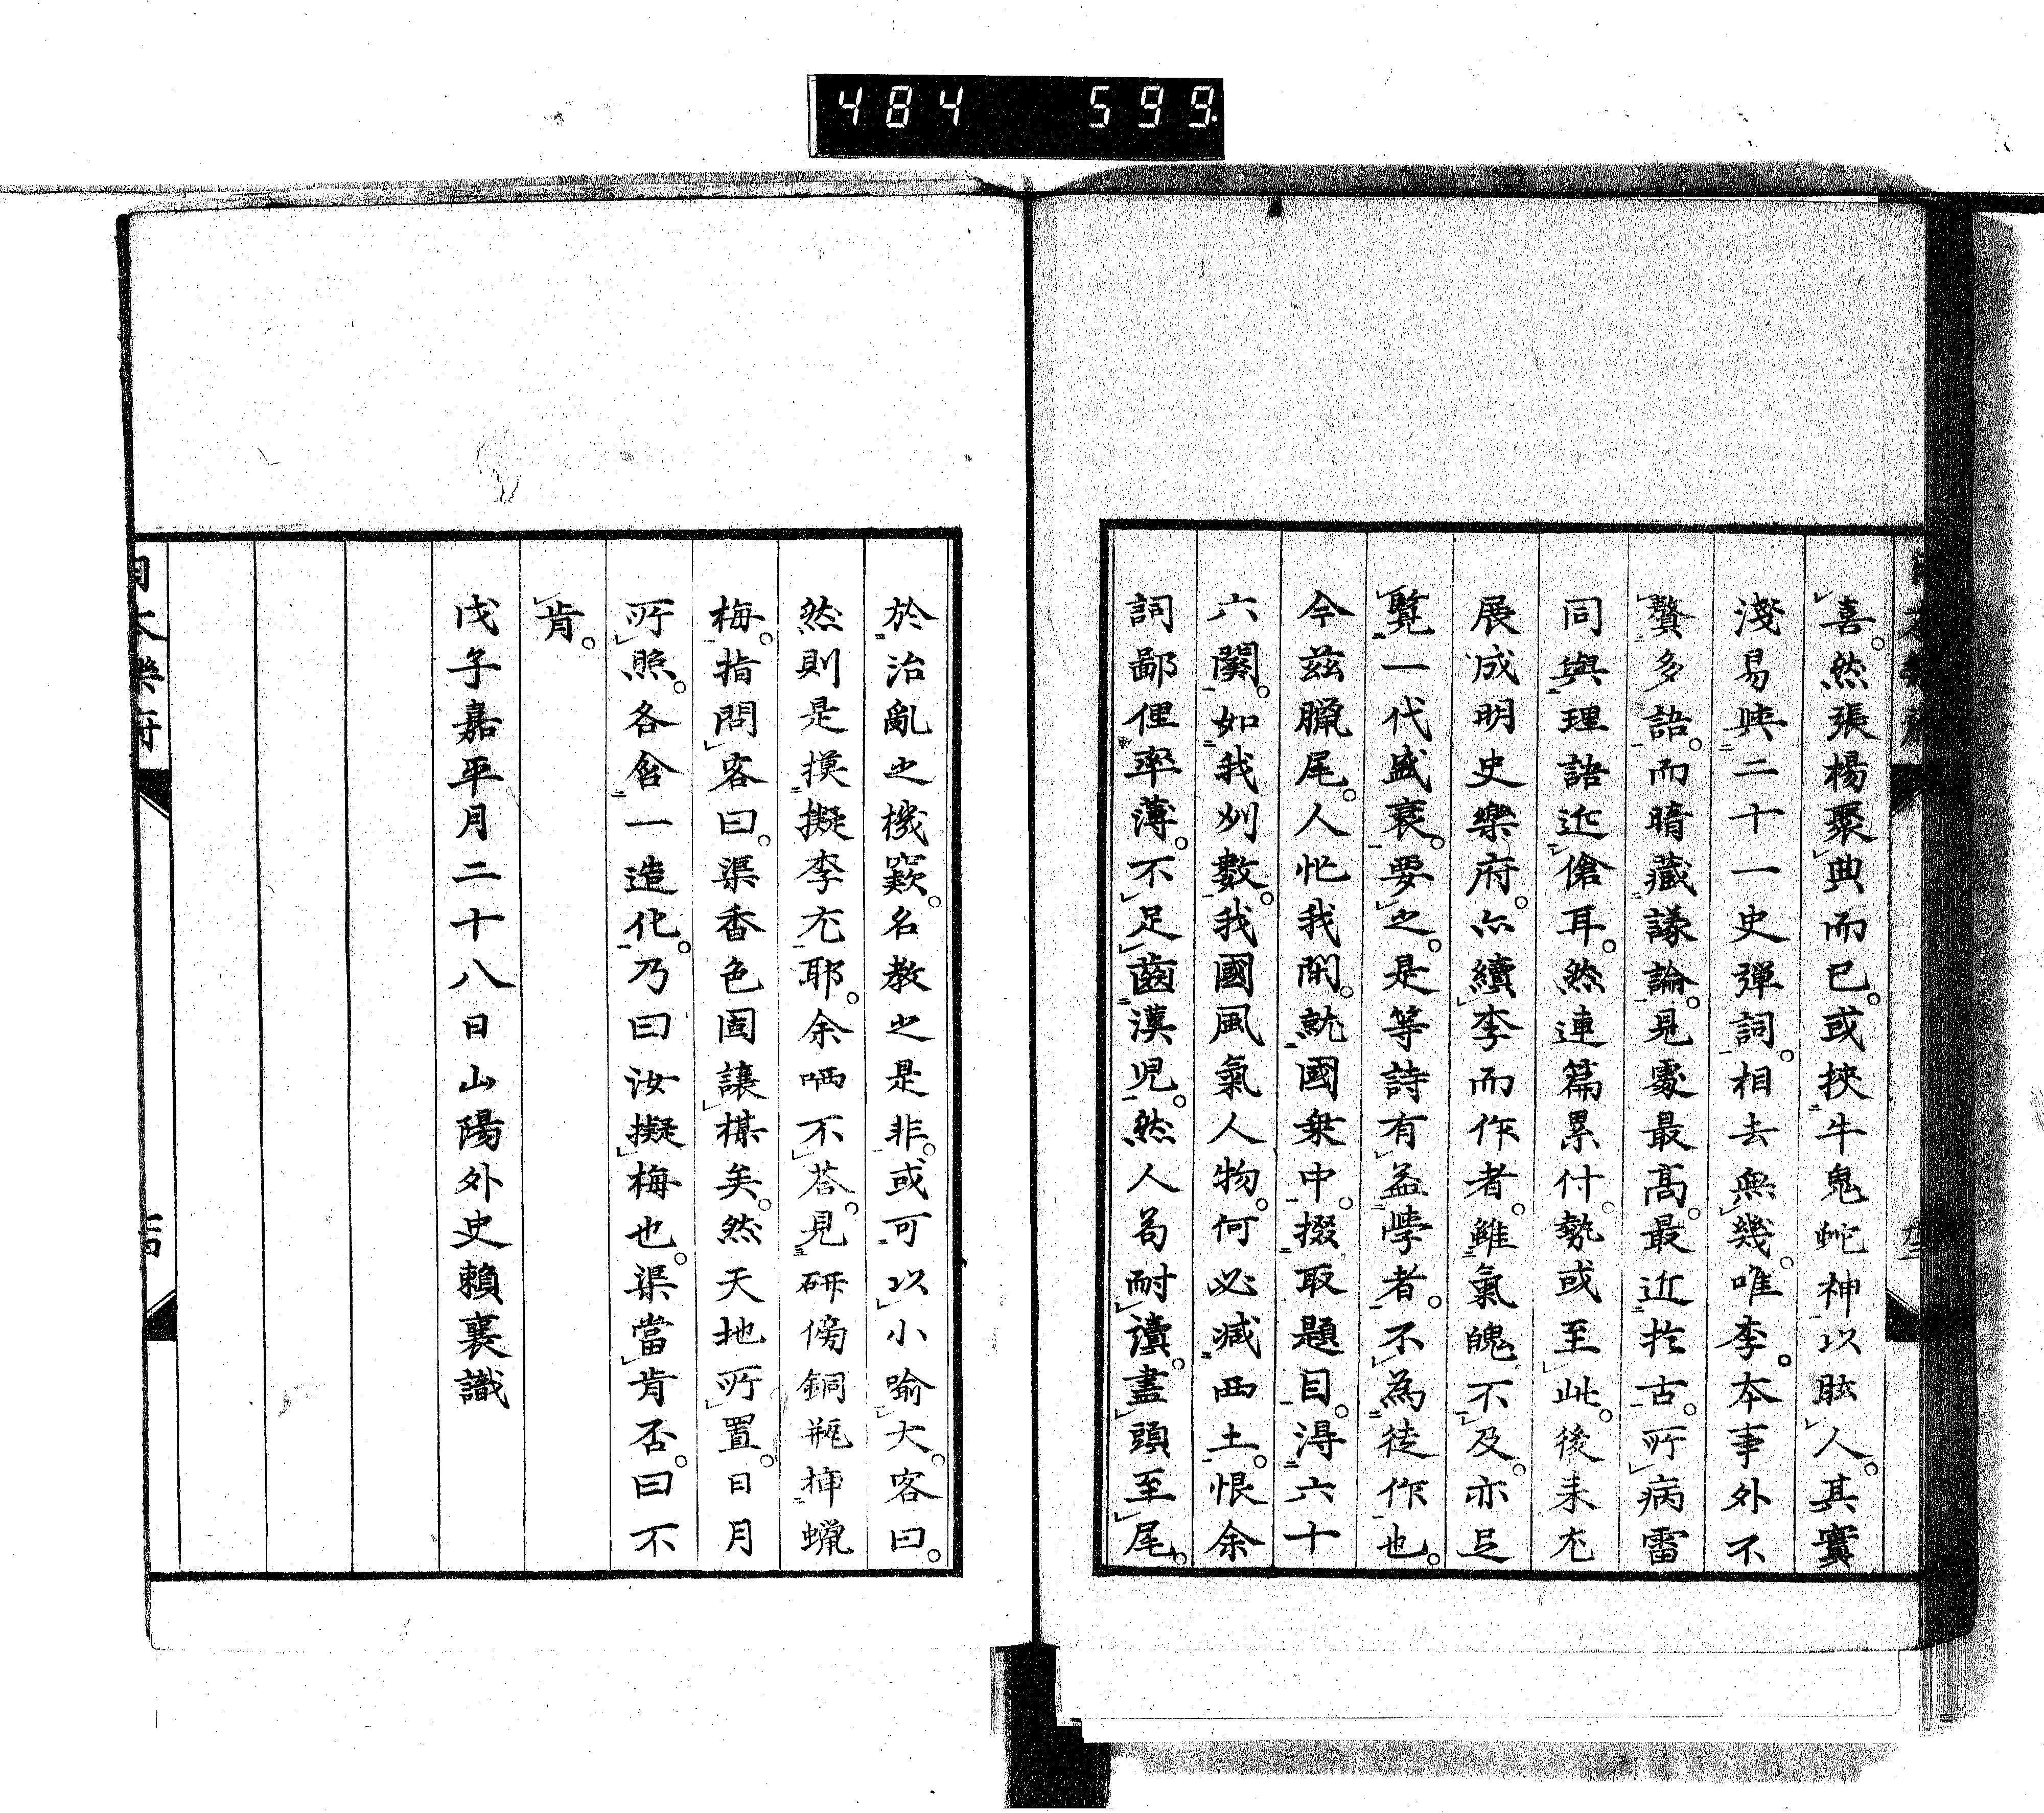 484 599
喜。然張楊聚典而已。或挾牛鬼蛇神以眩人。其實
淺易與二十一史彈詞。相去無幾。唯李。本事外不
贅多語。而暗藏議論。見處最高。最近於古。所病雷
同與理語近傖耳。然連篇累什。勢或至此。後来尤
展成明史樂府。亦續李而作者。雖氣魄不及。亦足
覧一代盛衰。要之。是等詩有益学者。不為徒作也。
今茲臘尾。人忙我閑。就國乗中。掇取題目。得六十
六闋。如我刈數。我國風氣人物。何必减西土。恨余
詞鄙俚率薄。不足齒漢児。然人苟耐讀。盡頭至尾。
於治亂之機竅。名教之是非。或可以小喻大。客曰。
然則是摸擬李尤耶。余哂不荅。見研傍銅瓶挿蠟
梅。指問客曰。渠香色固讓楳矣。然天地所置。日月
所照。各含一造化。乃曰汝擬梅也。渠當肯否。曰不
肯。
戊子嘉平月二十八日山陽外史賴襄識
日本樂府